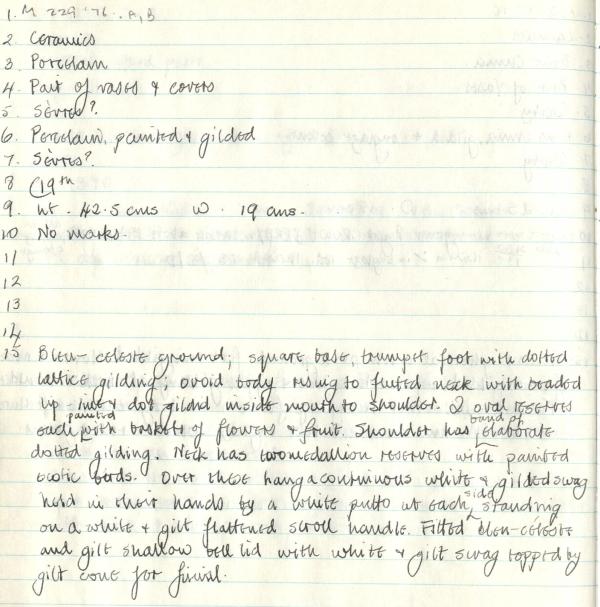 1. M 229 '76. A, B
2. Ceramics
3. Porcelain
4. Pair of vases & covers
5. Sèvres?
6. Porcelain, painted & gilded
7. Sèvres?.
8 C19th
9. ht. 42.5 cms W. 19 cms.
10 No marks.
11
12
13
14
15 Bleu-celeste ground, square base, trumpet foot with dotted
lattice gilding; ovoid body rising to fluted neck with beaded
lip inner dot gilded inside mouth to shoulder. 2 oval reserves
painted
each with baskets of flowers & fruit. Shoulder has elaborate
band of
dotted gilding. Neck has two medallion reserves with painted
exotic birds. Over these hang a continuous white & gilded swag
held in their hands by a white putto at each standing
side
on a white & gilt flattened scroll handle. Fitted bleu-celeste
and gilt shallow bell lid with white & gilt swag topped by
gilt cone for finial.